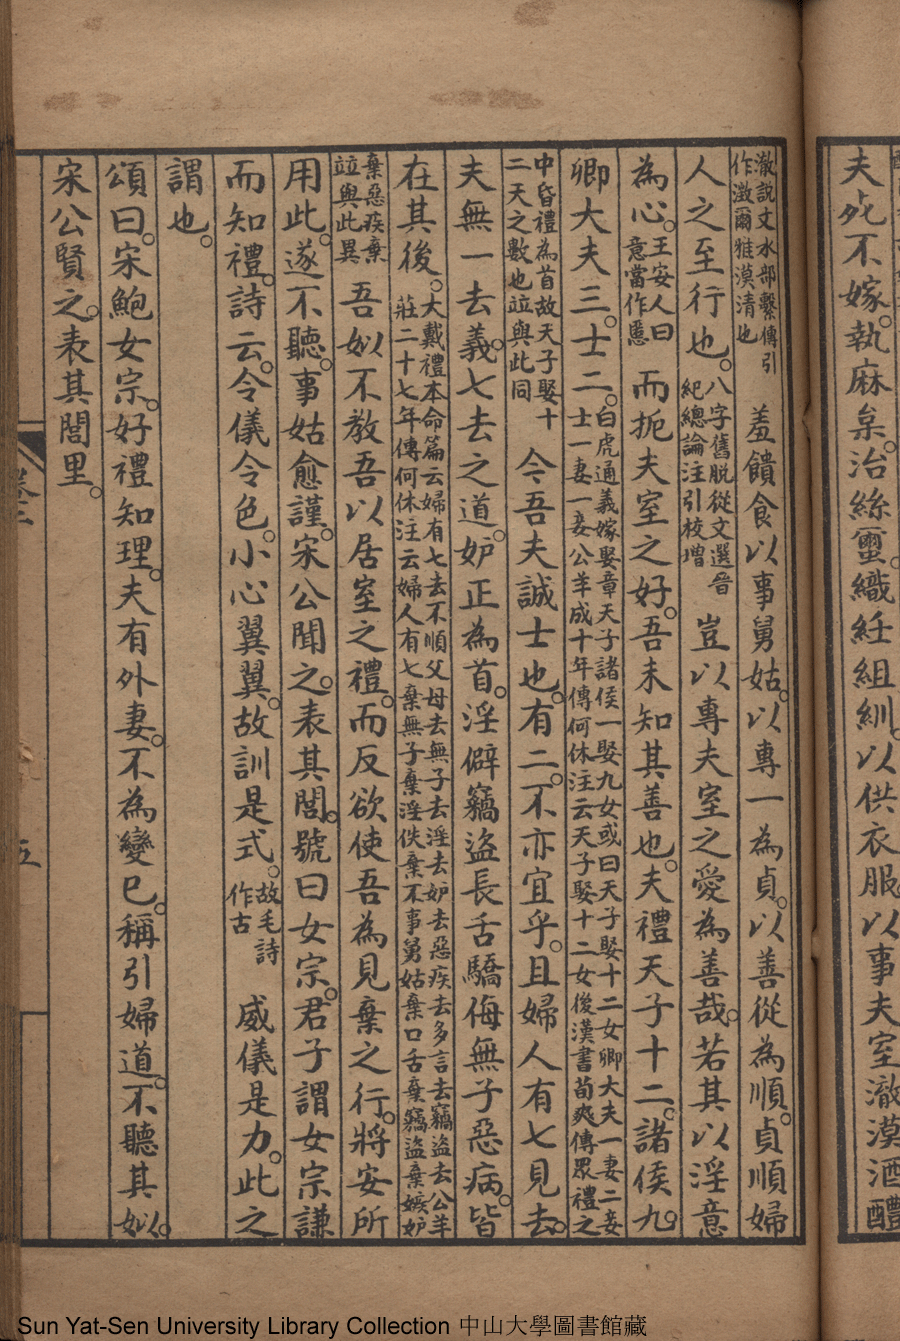 夫死不嫁。執麻枲。治絲璽。織紝組紃。以供衣服。以事夫室澈漠酒醴
澈說文水部繫傳引作澂爾雅漠清也 羞饋食以事舅姑。以專一為貞。以善從為順。貞順婦
人之至行也。八字舊脫從文選晉紀總論注引校增 豈以專夫室之愛為善哉。若其以淫意
為心。王安人曰意當作慝 而扼夫室之好。吾未知其善也。夫禮天子十二。諸侯九。
卿大夫三。士二。白虎通義嫁娶章天子諸侯一娶九女或曰天子娶十二女卿大夫一妻二妾士一妻一妾公羊成十年傳何休注云天子娶十二女後漢書荀爽傳眾禮之
中昏禮為首故天子娶十二天之數也竝與此同 今吾夫誠士也。有二。不亦宜乎。且婦人有七見去。
夫無一去義。七去之道。妒正為首。淫僻竊盜長舌驕侮無子惡病。皆
在其後。大戴禮本命篇云婦有七去不順父母去無子去淫去妒去惡疾去多言去竊盜去公羊莊二十七年傳何休注云婦人有七棄無子棄淫佚棄不事舅姑棄口舌棄竊盜棄嫉妒
棄惡疾棄竝與此異 吾姒不教吾以居室之禮。而反欲使吾為見棄之行。將安所
用此。遂不聽。事姑愈謹。宋公聞之。表其閭。號曰女宗。君子謂女宗謙
而知禮。詩云。令儀令色。小心翼翼。故訓是式。故毛詩作古 威儀是力。此之
謂也。
頌曰。宋鮑女宗。好禮知理。夫有外妻。不為變已。稱引婦道。不聽其姒。
宋公賢之。表其閭里。
五
Sun Yat-Sen University Library Collection 中山大學圖書館藏